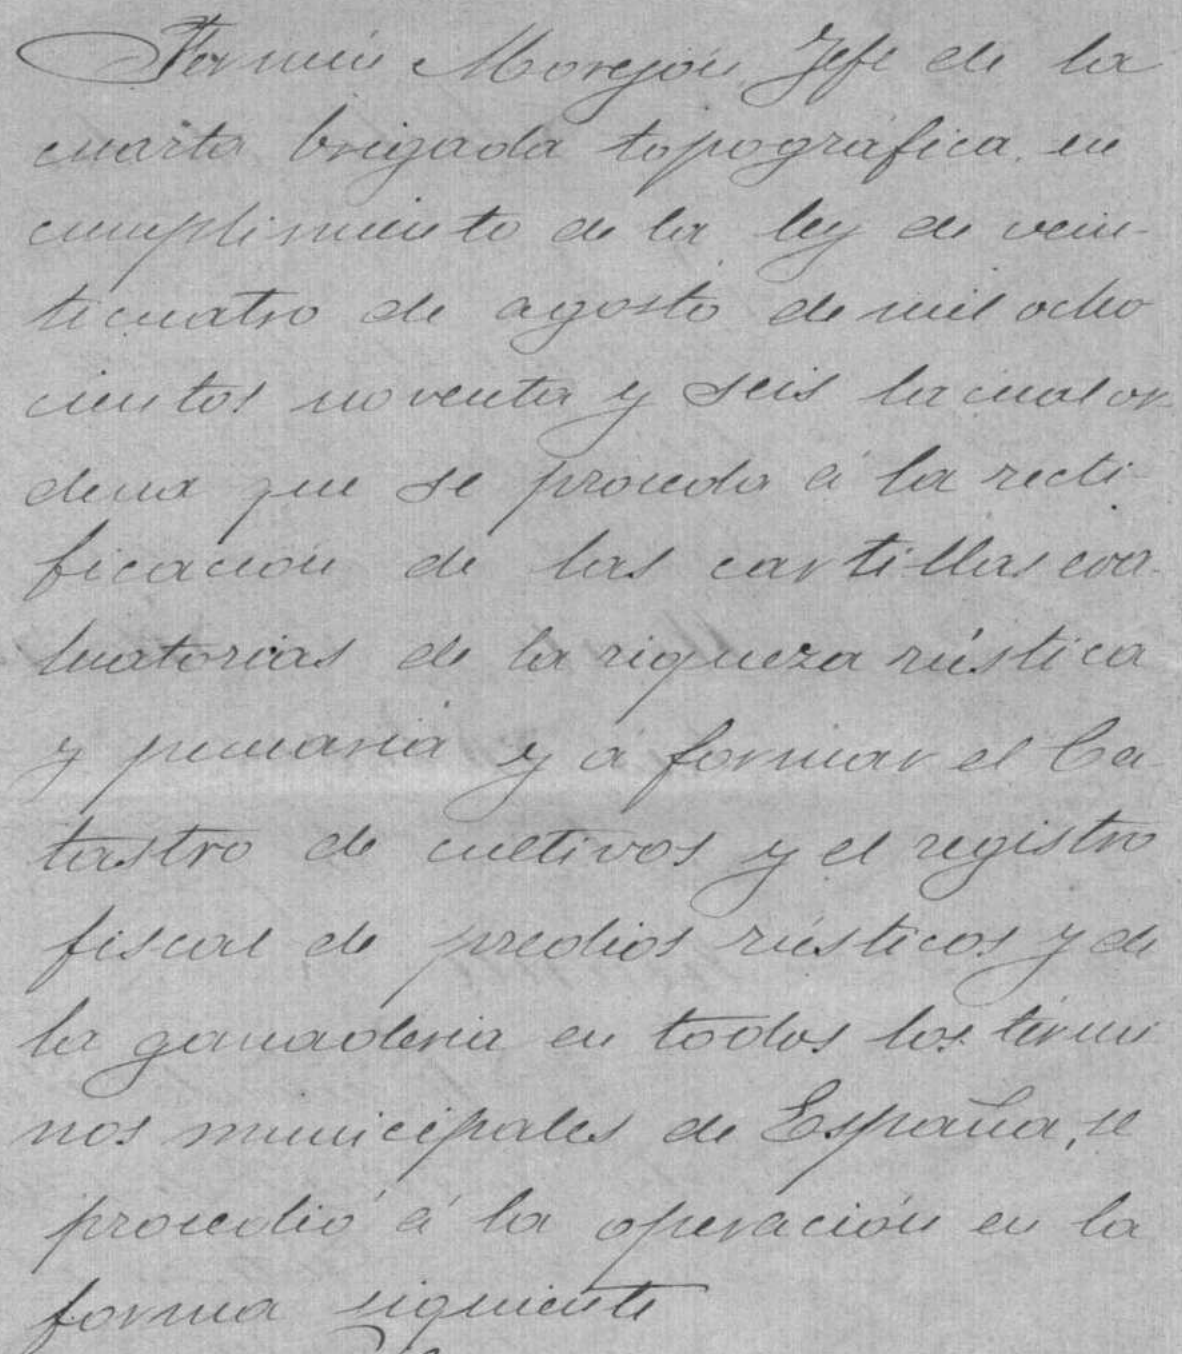 Fermín Morejón Jefe de la
cuarta brigada topográfica, en
cumplimiento de la ley de vein-
ticuatro de agosto de mil ocho
cientos noventa y seis la cual or-
dena que se proceda á la recti-
ficación de las cartillas eva-
luatorias de la riqueza rústica
y pecuaria y á formar el Ca-
tastro de cultivos y el registro
fiscal de predios rústicos y de
la ganaderia en todos los térmi
nos municipales de España, se
procedió á la operación en la
forma siguiente